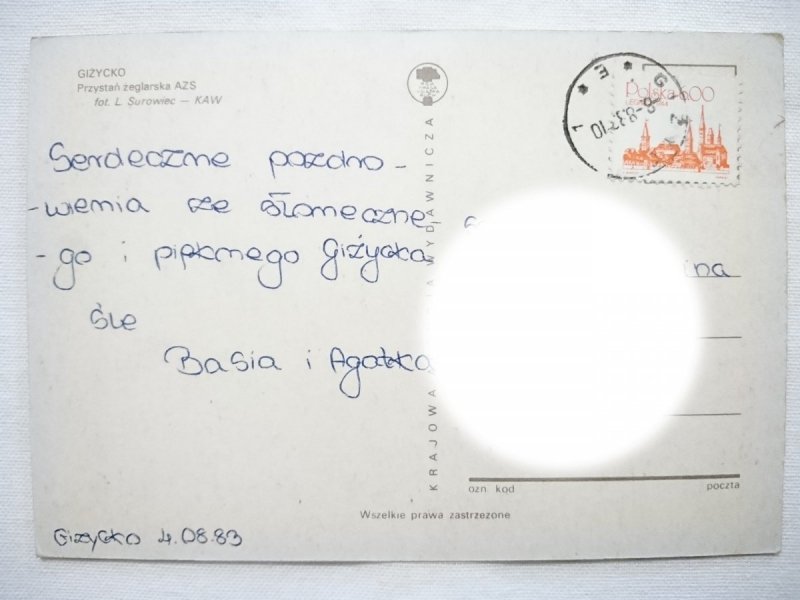 GIŻYCKO
Przystań żeglarska AZS
fot. L. Surowiec — KAW
Serdeczne pozdro-
-wienia ze słoneczne,
-go i pięknego Giżycka
śle
Basia i Agatka
Giżycko 4.08.83
KRAJOWA
WYDAWNICZA
Polska 6.00
ina
ozn. kod
poczta
Wszelkie prawa zastrzeżone